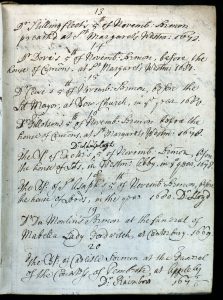 13
Dr Stillingfleets 5th of Novemb. Sermon
preached at St Margarets Westm: 1673.
14
Dr 5th of Novemb. Sermon, before the
house of Comons, at St Margarets Westm: 1680.
15
Dr 5th of Novemb. Sermon, before the
Ld Mayor, at Bow-church, in ye year 1683
16
Dr 5th of Novemb. Sermon before the
house of Comons, at St Margarets Westm: 1678.
17
The Bp of 5th of Novemb. Sermon, before
the house of Lds, in Westm: Abby, in ye year, 1678
18
The Bp of St Asaph's 5th of Novemb. Sermon, before
the house of Lords, in the year 1680. Dr Lloyd
19
Dr Du Moulins Sermon at the funeral of
Mabella Lady Fordwich, at Canterbury 1669
20
The Bp of Carlisle Sermon at the Funeral
of the Countess of Pembroke, at Appleby
Dr Rainbow 1676